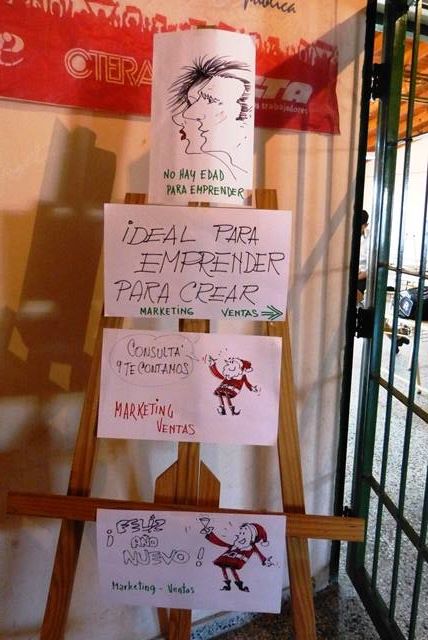 pública
CTERA
CTA
trabajadores
NO HAY EDAD
PARA EMPRENDER
¡DEAL PARA
EMPRENDER
PARA CREAR
MARKETING VENTAS →
CONSULTÁ
Y TE CONTAMOS
MARKETING
VENTAS
¡FELÍZ
AÑO
NUEVO!
Marketing - Ventas